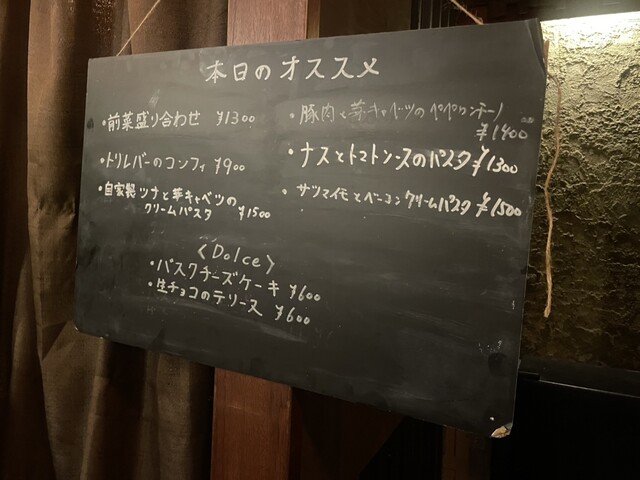 本日のオススメ
・前菜盛り合わせ ¥1300
・トリレバーのコンフィ ¥900
・自家製ツナと芽キャベツの
クリームパスタ ¥1500
・豚肉と芽キャベツのペペロンチーノ
¥1400
・ナスとトマトソースのパスタ ¥1300
・サツマイモとベーコンクリームパスタ ¥1500
〈Dolce〉
・バスクチーズケーキ ¥600
・生チョコのテリーヌ ¥600